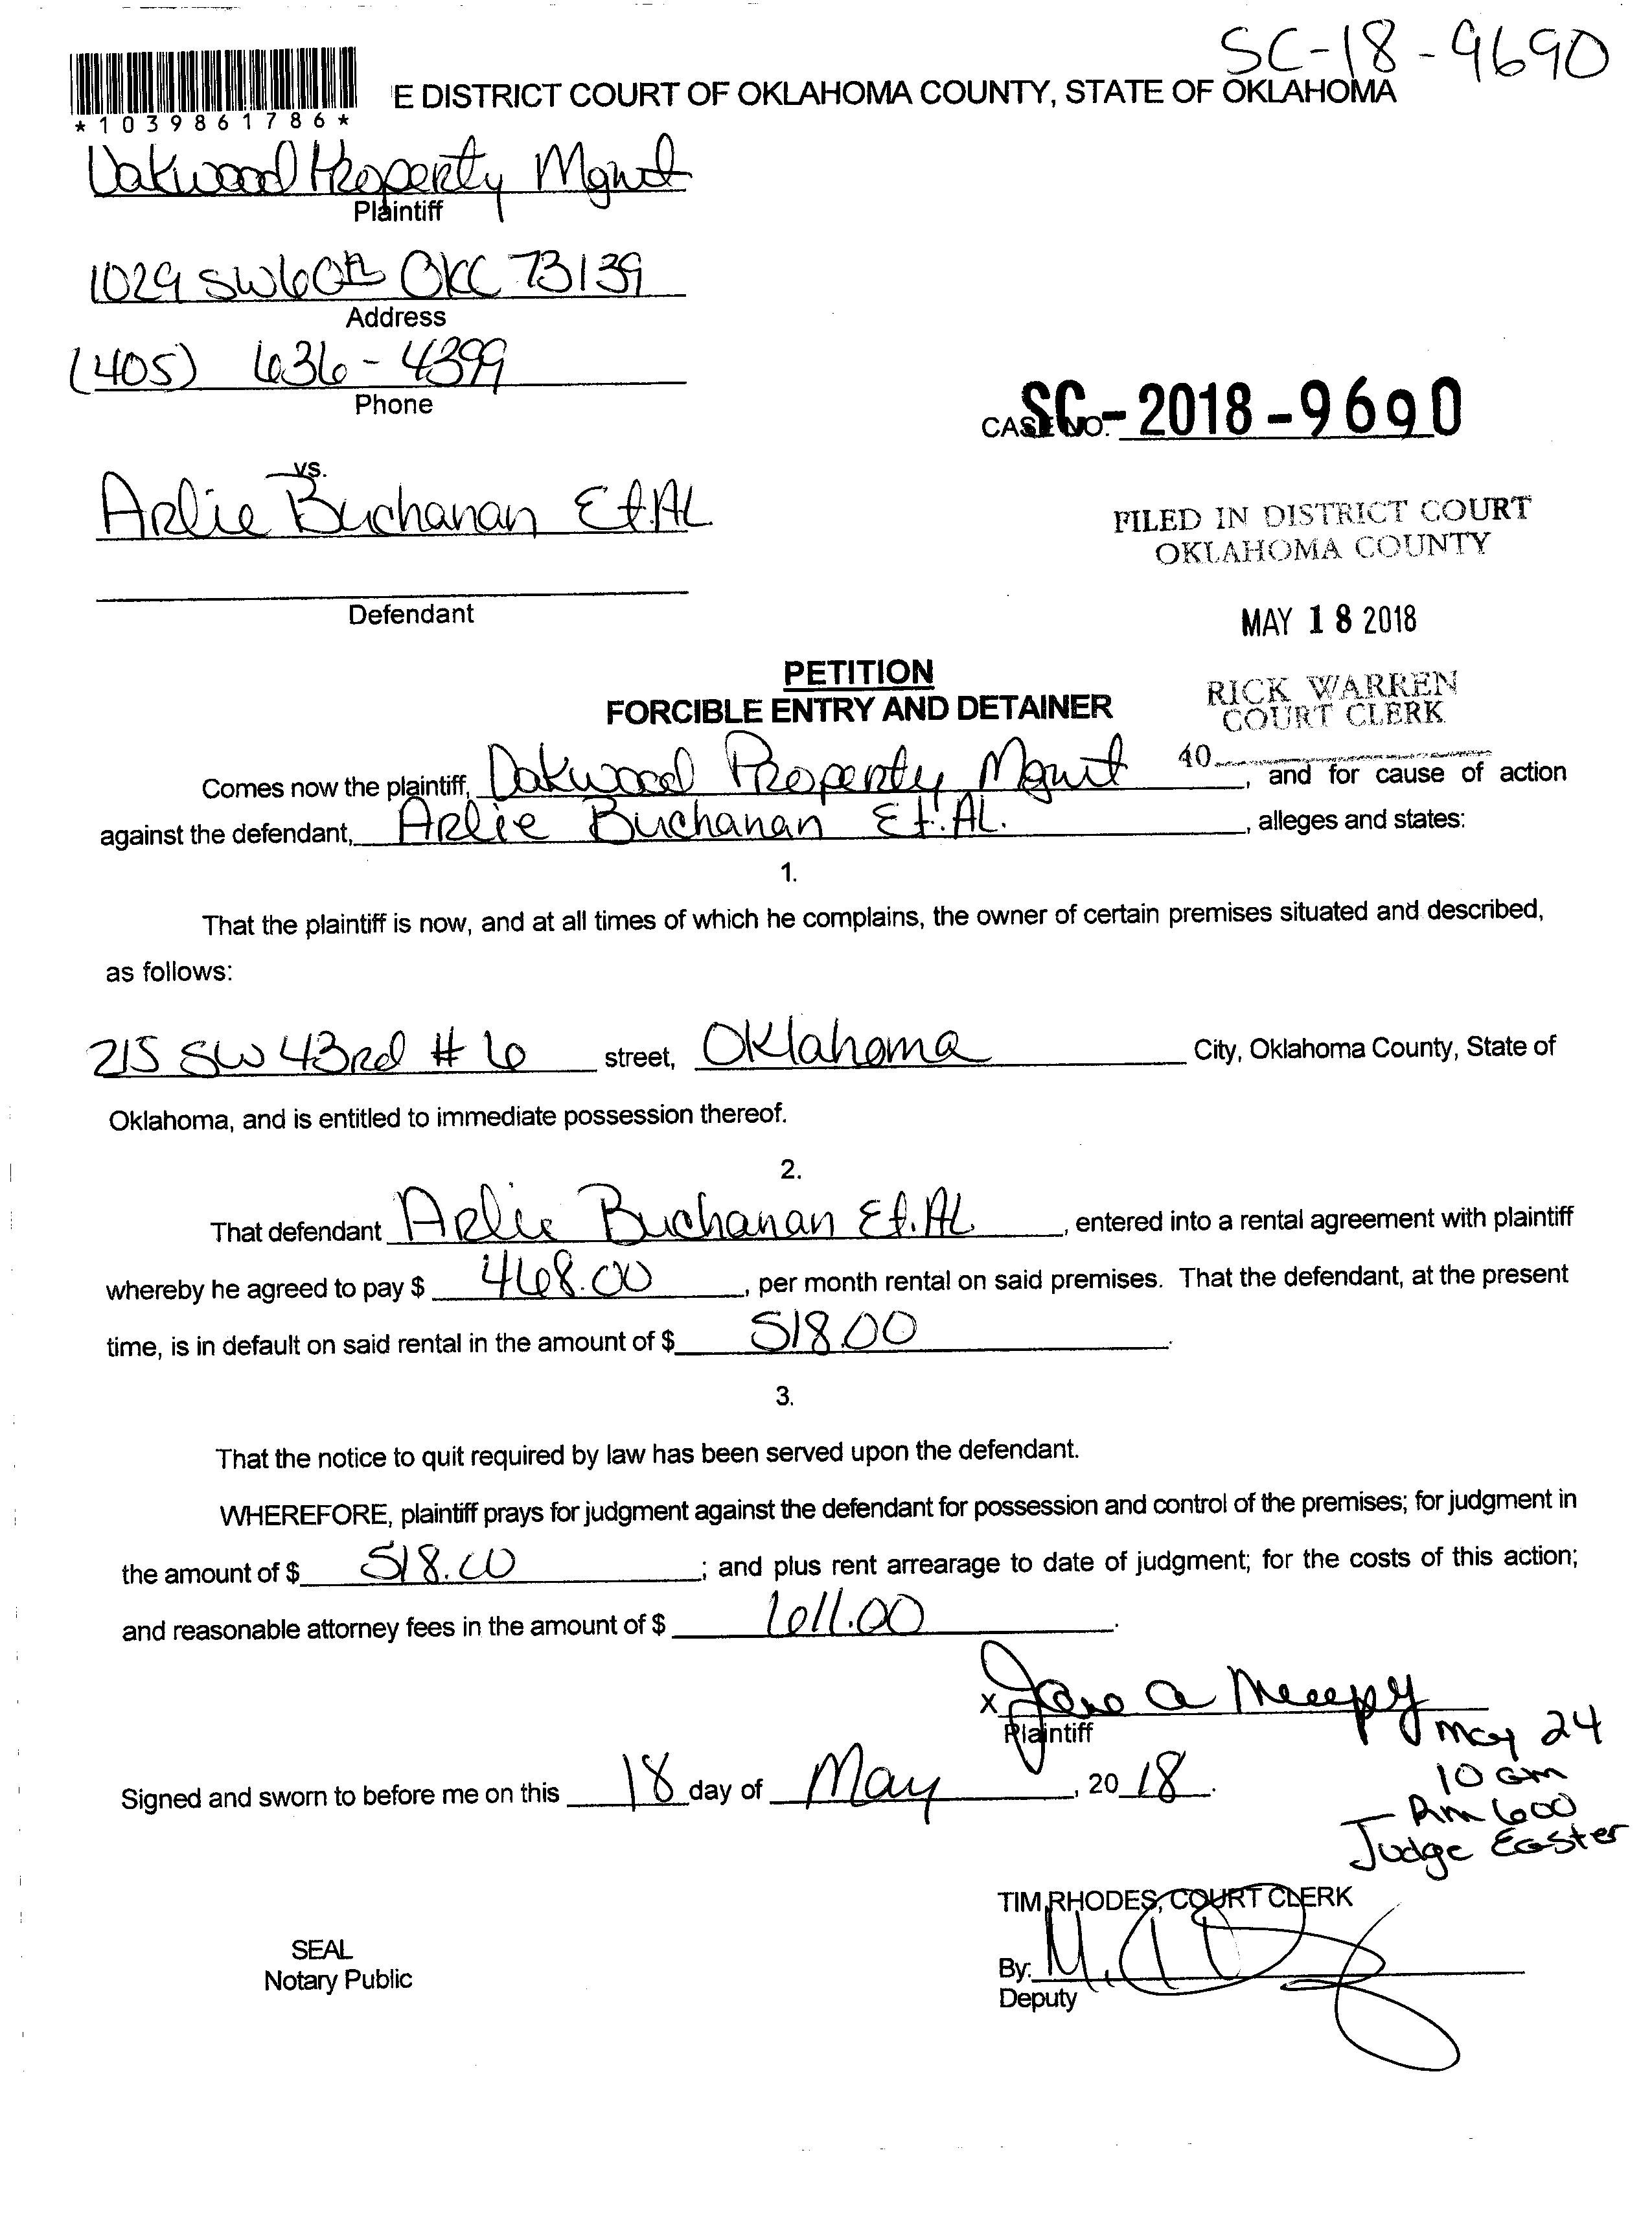 SC-18-9690
E DISTRICT COURT OF OKLAHOMA COUNTY, STATE OF OKLAHOMA
*1039861786*
Oakwood Property Mgmt
Plaintiff
1029 SW 60th OKC 73139
Address
(405) 636-4399
Phone
CASE NO. SC-2018-9690
vs.
Arlie Buchanan Et.AL
FILED IN DISTRICT COURT
OKLAHOMA COUNTY
Defendant
MAY 18 2018
PETITION
FORCIBLE ENTRY AND DETAINER
RICK WARREN
COURT CLERK
40
Comes now the plaintiff, Oakwood Property Mgmt, and for cause of action
against the defendant, Arlie Buchanan Et.AL., alleges and states:
1.
That the plaintiff is now, and at all times of which he complains, the owner of certain premises situated and described,
as follows:
215 SW 43rd #6 street, Oklahoma City, Oklahoma County, State of
Oklahoma, and is entitled to immediate possession thereof.
2.
That defendant Arlie Buchanan Et.AL, entered into a rental agreement with plaintiff
whereby he agreed to pay $ 468.00, per month rental on said premises. That the defendant, at the present
time, is in default on said rental in the amount of $ 518.00.
3.
That the notice to quit required by law has been served upon the defendant.
WHEREFORE, plaintiff prays for judgment against the defendant for possession and control of the premises; for judgment in
the amount of $ 518.00; and plus rent arrearage to date of judgment; for the costs of this action;
and reasonable attorney fees in the amount of $ 611.00.
x
Plaintiff
May 24
10 am
Rm 600
Judge Easter
Signed and sworn to before me on this 18 day of May, 2018.
TIM RHODES, COURT CLERK
SEAL
Notary Public
By:
Deputy